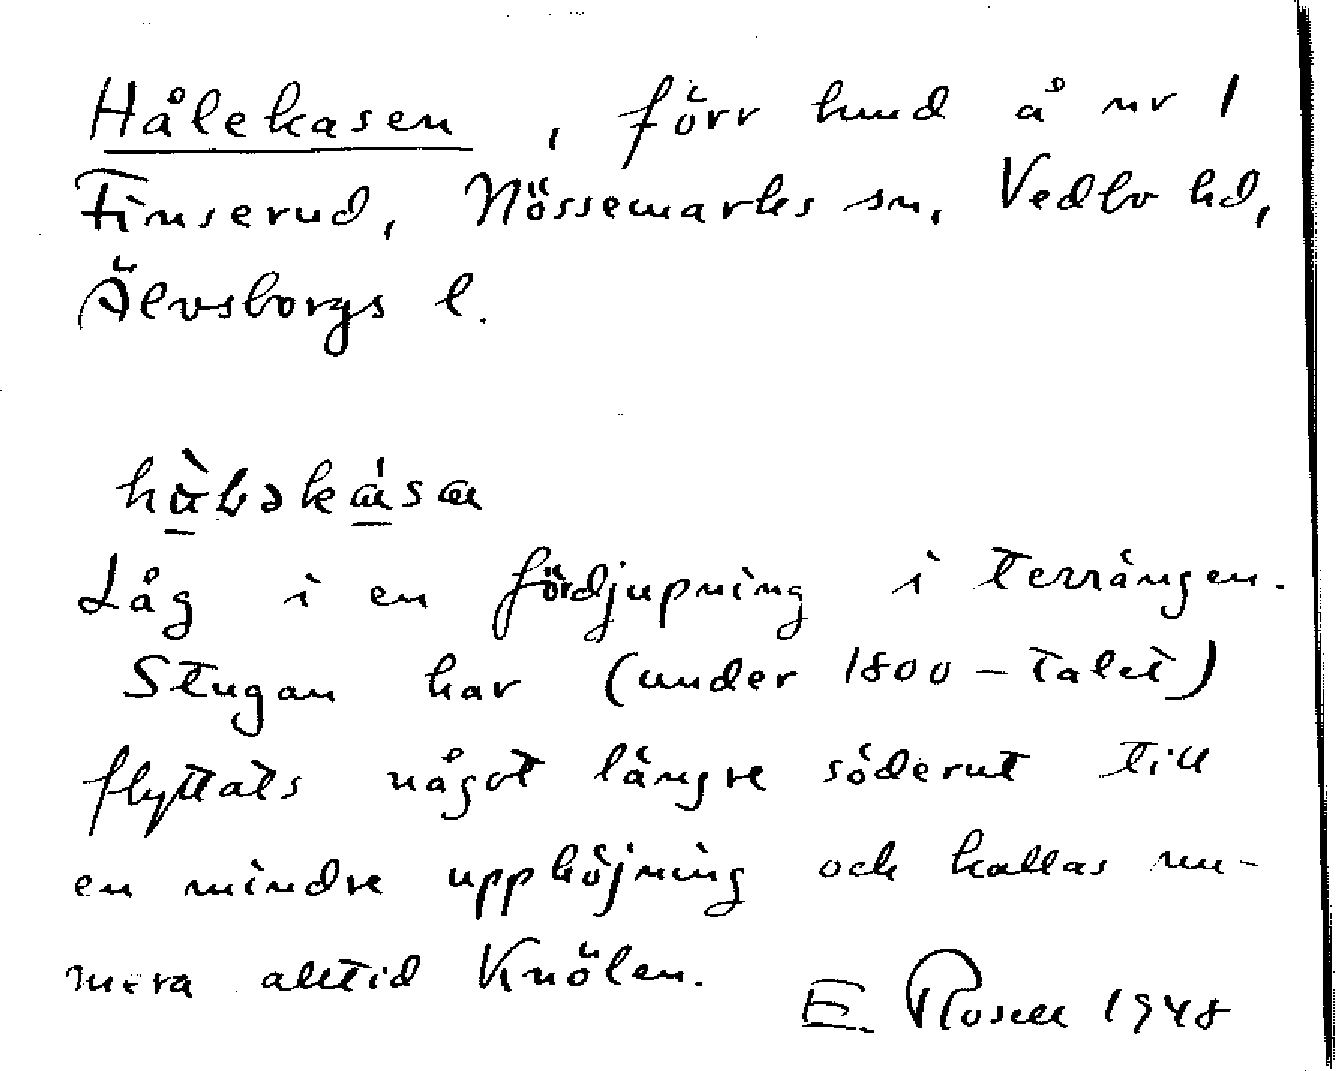 Hålekasen, förr hmd å nr 1
Finserud, Nössemarks sn, Vedbo hd,
Älvsborgs l.
Låg i en fördjupning i terrängen.
Stugan har (under 1800-talet)
flyttats något längre söderut till
en mindre upphöjning och kallas nu-
mera alltid Knölen.
E. Rosell 1948